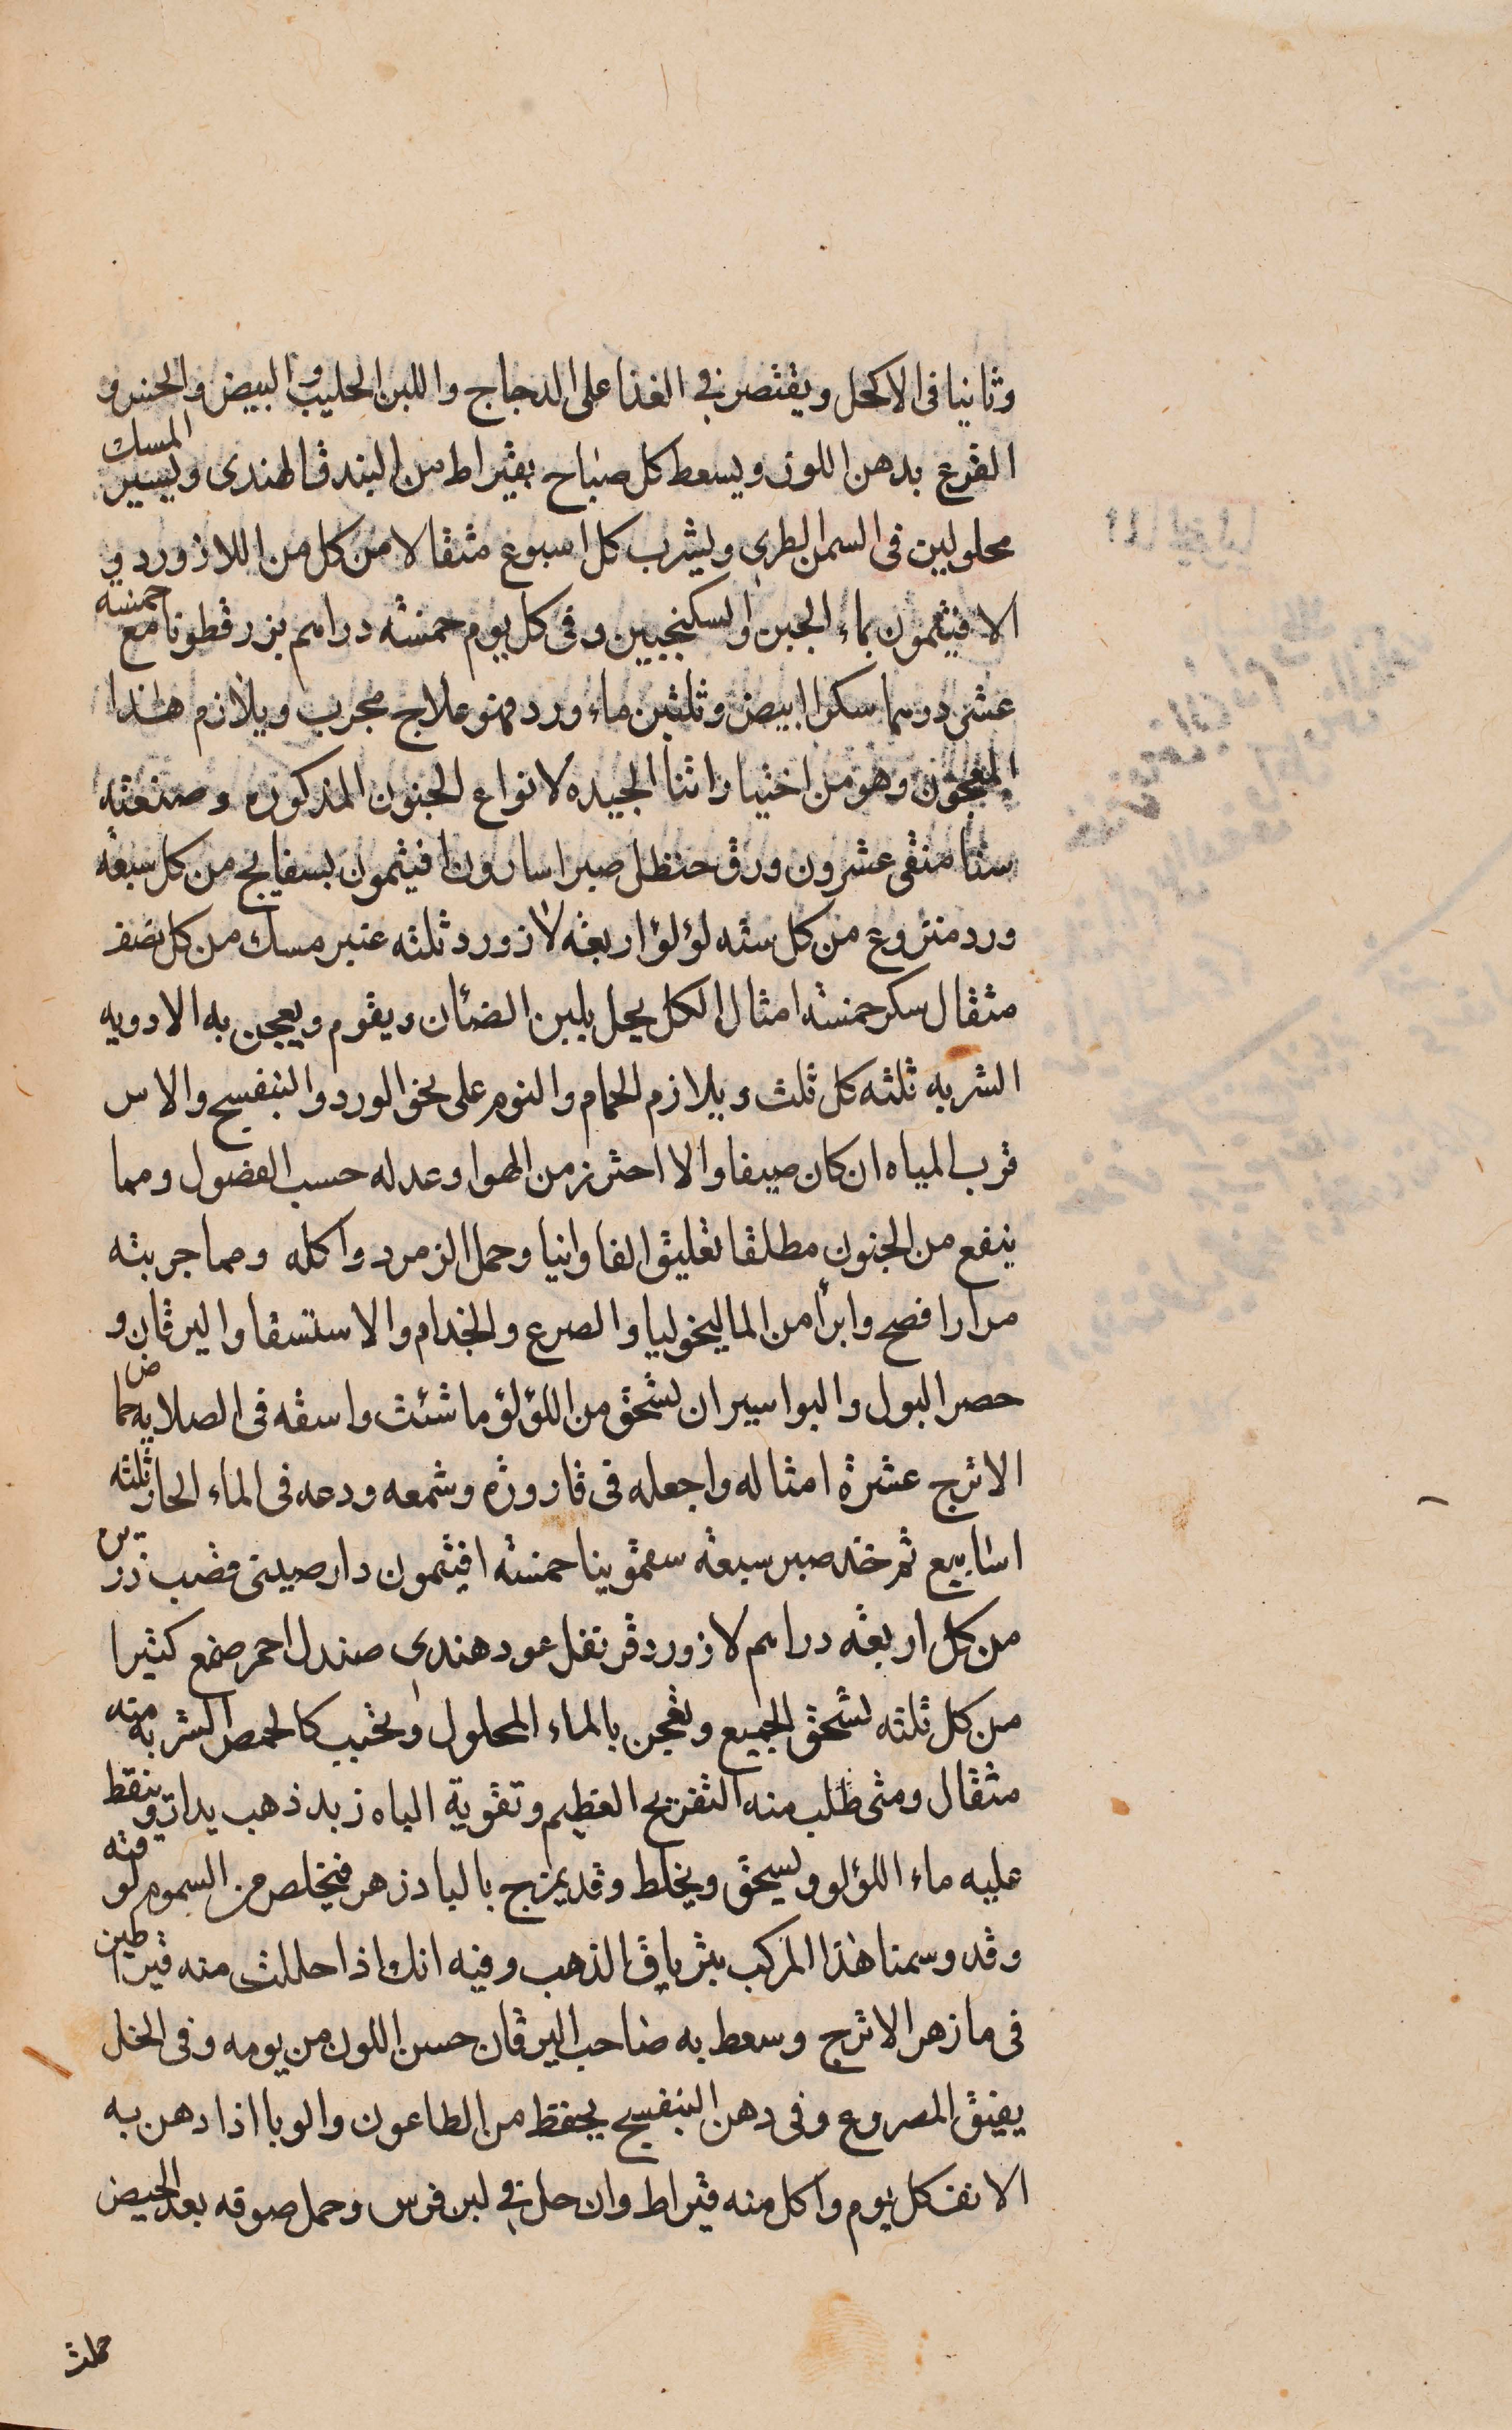 وثانيا فى الاكحل ويقتصر فى الغذا على الدجاج واللبن الحليب والبيض والخس و
القرع بدهن اللوز ويسعط كل صباح بقيراط من البندق الهندى ويسير المسك
محلولين فى السمن الطرى ويشرب كل اسبوع مثقالا من كل من اللازورد و
الافيثمون بماء الجبن او السكنجبين وفى كل يوم خمسة دراهم بزر قطونا مع خمسه
عشر درهما سكر ابيض وثلثين ماء ورد فهو علاج مجرب ويلازم هذا
المعجون وهو من اختياراتنا الجيده لانواع الجنون المذكوره وصنعته
سنا منقى عشرون ورق حنظل صبر اسارون افيثمون بسفايج من كل سبعة
ورد منزوع من كل سته لؤلؤ اربعة لازورد ثلثه عنبر مسك من كل نصف
مثقال سكر خمسة امثال الكل يحل بلبن الضئان ويقوم ويعجن به الادويه
الشربه ثلثه كل ثلث ويلازم الحمام والنوم على نحو الورد والبنفسج والاس
قرب المياه ان كان صيفا والا احترز من الهوا وعدله حسب الفصول ومما
ينفع من الجنون مطلقا تعليق الفاوانيا وحمل الزمرد واكله ومما جربته
مرارا فصح وابرأ من الماليخوليا والصرع والجذام والاستسقا واليرقان و
حصر البول والبواسير ان تسحق من اللؤلؤ ما شئت واسقه فى الصلايه حماض
الاترج عشرة امثاله واجعله فى قاروره وشمعه ودعه فى الماء الحار ثلثه
اسابيع ثم خذ صبر سبعة سقمونيا خمسة افيثمون دارصينى قصب ذريره
من كل اربعة دراهم لازورد قرنفل عود هندى صندل احمر صمغ كثيرا
من كل ثلثه تسحق الجميع وتعجن بالماء المحلول وتحبب كالحمص الشربه منه
مثقال ومتى طلب منه التفريح العظيم وتقوية الباه زيد ذهب يداف وينقط
عليه ماء اللؤلو ويسحق ويخلط وقد يمزج بالبادزهر فيخلص من السموم لوقته
وقد وسمنا هذا المركب بترياق الذهب وفيه انك اذا حللت منه قيراطين
فى ما زهر الاترج وسعط به صاحب اليرقان حسن اللون من يومه وفى الخل
يفيق المصروع وفى دهن البنفسج يحفظ من الطاعون والوبا اذا دهن به
الانف كل يوم واكل منه قيراط وان حل فى لبن فرس وحمل صوفه بعد الحيض
حملت